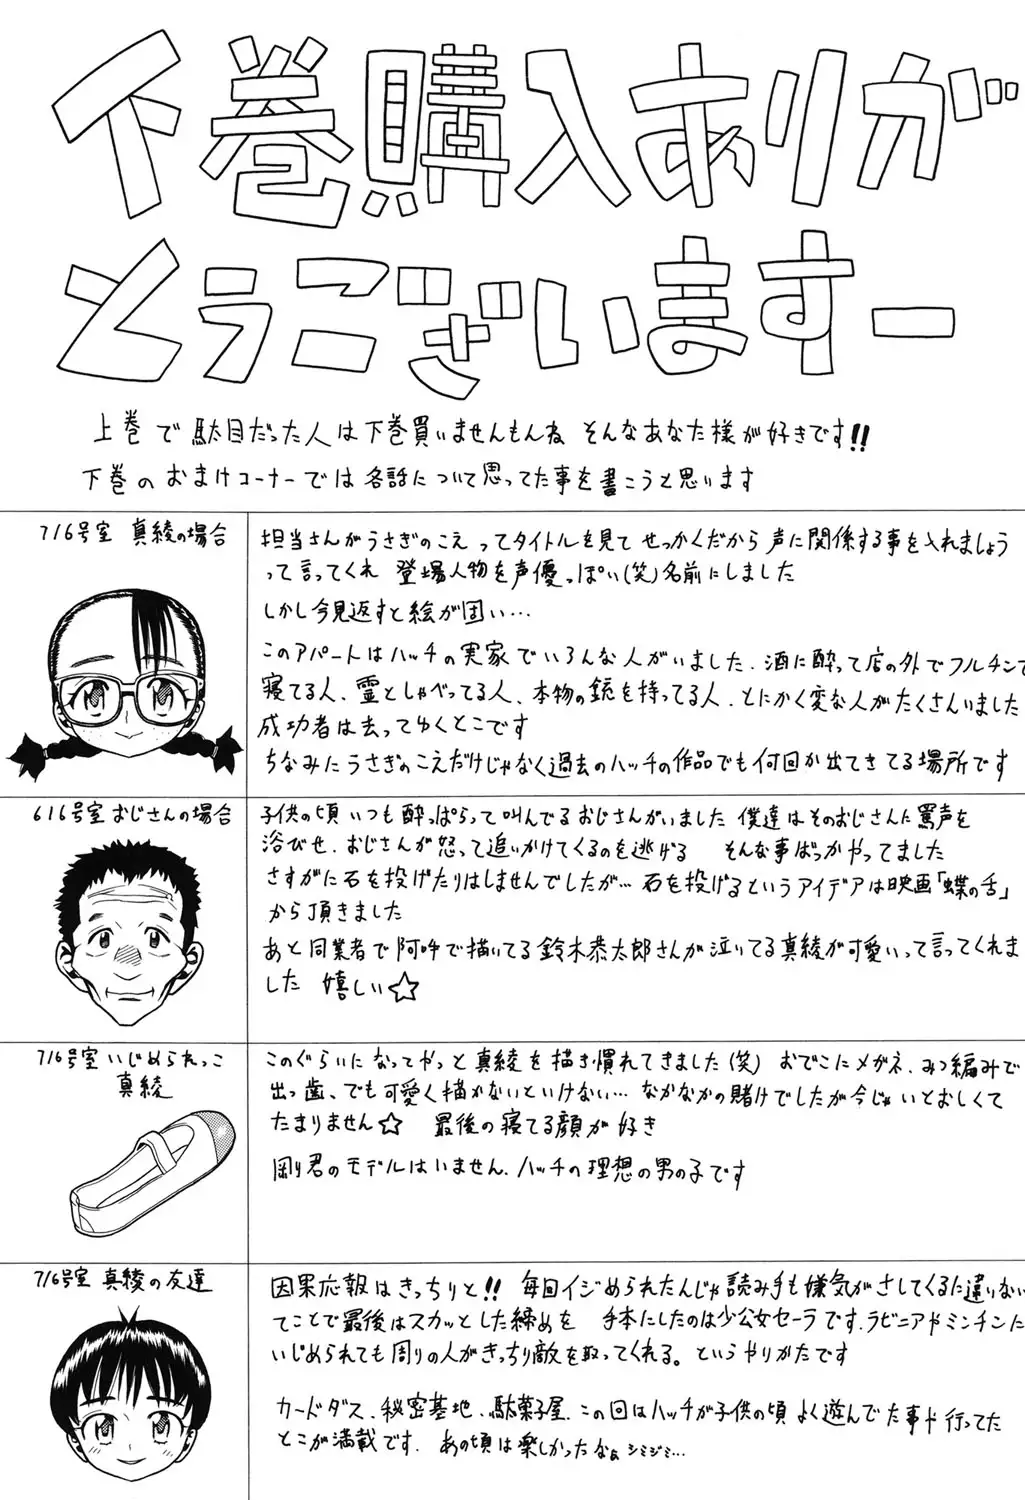 下巻購入ありが
とうございますー
上巻で駄目だった人は下巻買いませんもんね そんなあなた様が好きです!!
下巻のおまけコーナーでは各話について思ってた事を書こうと思います
716号室 真綾の場合
担当さんがうさぎのこえ ってタイトルを見て せっかくだから 声に関係する事を入れましょう
って言ってくれ 登場人物を声優っぽい(笑)名前にしました
しかし今見返すと絵が固い…
このアパートはハッチの実家でいろんな人がいました. 酒に酔って店の外でフルチンで
寝てる人、霊としゃべってる人、本物の銃を持ってる人、とにかく変な人がたくさんいました
成功者は去ってゆくとこです
ちなみにうさぎのこえだけじゃなく過去のハッチの作品でも何回か出てきてる場所です
616号室おじさんの場合
子供の頃いつも酔っぱらって叫んでるおじさんがいました 僕達はそのおじさんに罵声を
浴びせ、おじさんが怒って追いかけてくるのを逃げる そんな事ばっかやってました
さすがに石を投げたりはしませんでしたが… 石を投げるというアイデアは映画「蝶の舌」
から頂きました
あと同業者で阿吽で描いてる鈴木恭太郎さんが泣いてる真綾が可愛いって言ってくれま
した 嬉しい☆
716号室いじめられっこ
真綾
このぐらいになってやっと真綾を描き慣れてきました(笑) おでこにメガネ、みつ編みで
出っ歯、でも可愛く描かないといけない… なかなかの賭けでしたが今じゃいとおしくて
たまりません☆ 最後の寝てる顔が好き
剛り君のモデルはいません、ハッチの理想の男の子です
716号室 真綾の友達
因果応報はきっちりと!! 毎回イジめられたんじゃ読み手も嫌気がさしてくるに違いない
てことで最後はスカッとした締めを 手本にしたのは少公女セーラです、ラビニアやミンチンに
いじめられても周りの人がきっちり敵を取ってくれる。というやりかたです
カードダス、秘密基地、駄菓子屋、この回はハッチが子供の頃よく遊んでた事や行ってた
とこが満載です. あの頃は楽しかったなぁ シミジミ…